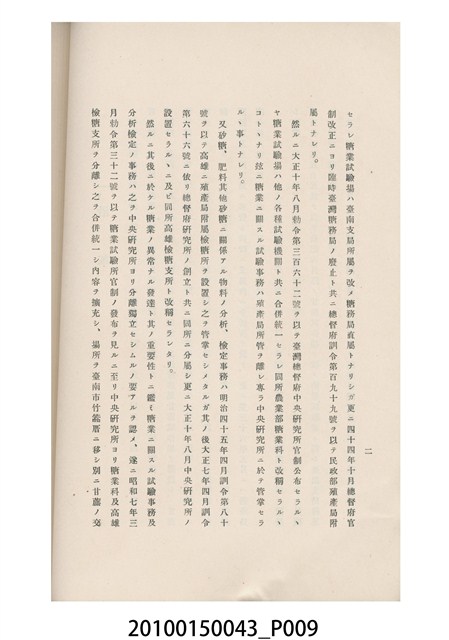 二
セラレ糖業試驗場ハ臺南支局所屬ヲ改メ糖務局直屬トナリシガ更ニ四十四年十月總督府官
制改正ニヨリ臨時臺灣糖務局ノ廢止ト共ニ總督府訓令第百九十九號ヲ以テ民政部殖產局附
屬トナレリ。
然ルニ大正十年八月勅令第三百六十二號ヲ以テ臺灣總督府中央硏究所官制公布セラルヽ
ヤ糖業試驗場ハ他ノ各種試驗機關ト共ニ合併統一セラレ同所農業部糖業科ト改稱セラルヽ
コトヽナリ玆ニ糖業ニ關スル試驗事務ハ殖產局所管ヲ離レ專ラ中央硏究所ニ於テ管掌セラ
ルヽ事トナレリ。
又砂糖、肥料其他砂糖ニ關係アル物料ノ分析、檢定事務ハ明治四十五年四月訓令第八十
號ヲ以テ高雄ニ殖產局附屬檢糖所ヲ設置シ之ヲ管掌セシメタルガ其ノ後大正七年四月訓令
第六十六號ニ依リ總督府硏究所ノ創立ト共ニ同所ニ分屬シ更ニ大正十年八月中央硏究所ノ
設置セラルヽニ及ビ同所高雄檢糖支所ト改稱セラレタリ。
然ルニ其後ニ於ケル糖業ノ異常ナル發達ト其ノ重要性トニ鑑ミ糖業ニ關スル試驗事務及
分析檢定ノ事務ハ之ヲ中央硏究所ヨリ分離獨立セシムルノ要アルヲ認メ、遂ニ昭和七年三
月勅令第三十二號ヲ以テ糖業試驗所官制ノ發布ヲ見ルニ至リ中央硏究所ヨリ糖業科及高雄
檢糖支所ヲ分離シ之ヲ合併統一シ內容ヲ擴充シ、場所ヲ臺南市竹篙厝ニ移シ別ニ甘蔗ノ交
20100150043_P009